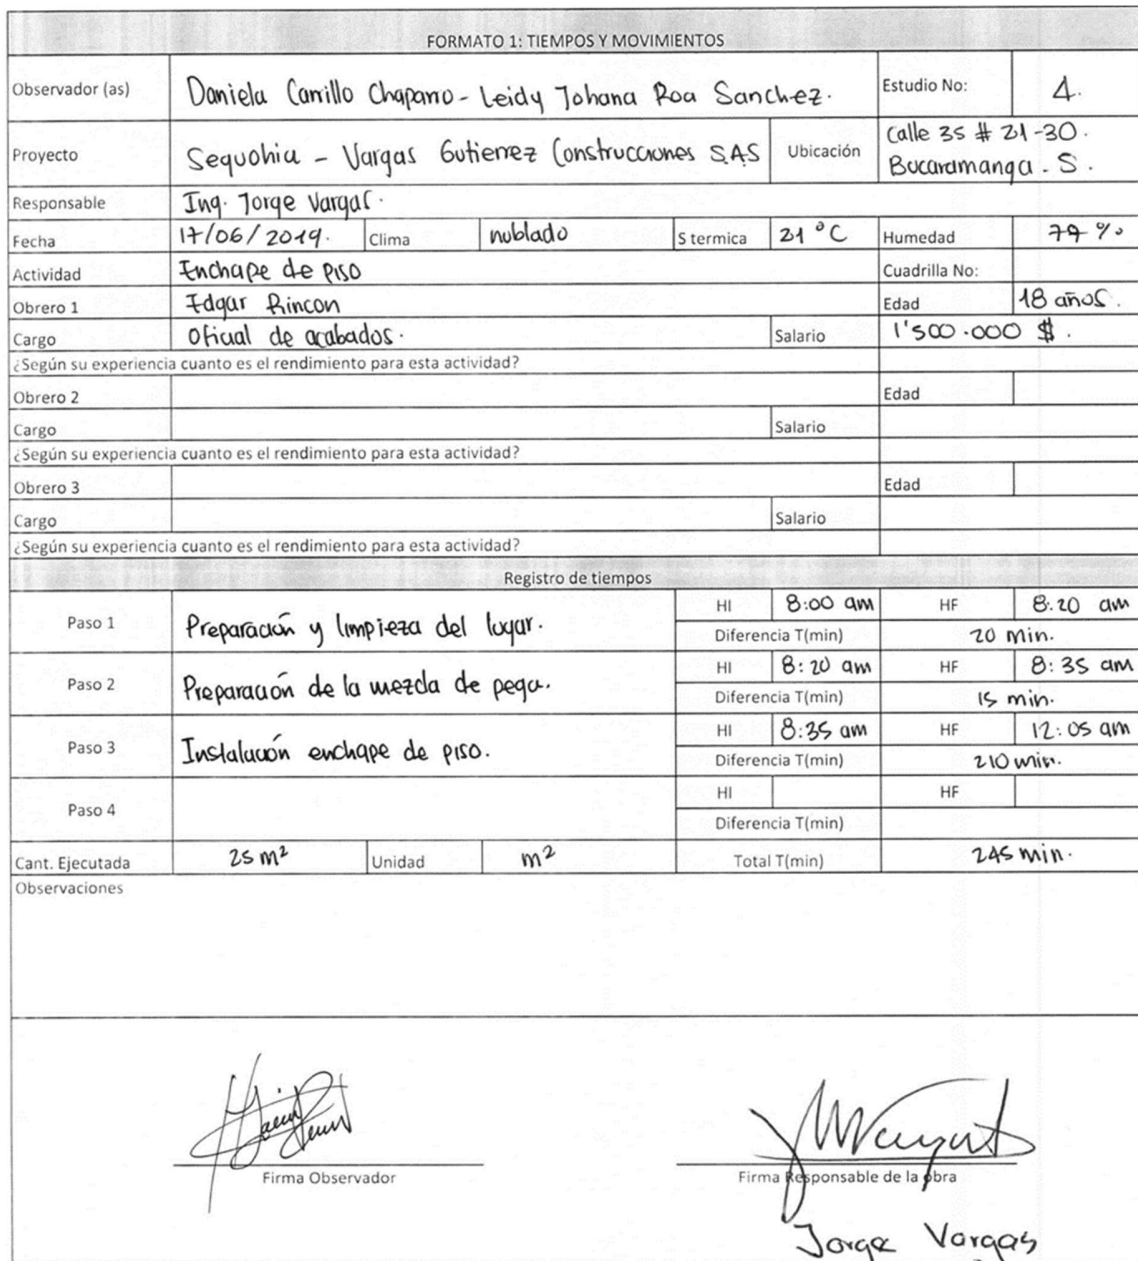 FORMATO 1: TIEMPOS Y MOVIMIENTOS
Observador (as) Daniela Carrillo Chaparro - Leidy Johana Roa Sanchez. Estudio No: 4.
Proyecto Sequohia - Vargas Gutierrez Construcciones S.A.S Ubicación Calle 35 # 21-30.
Bucaramanga . S.
Responsable Ing. Jorge Vargas.
Fecha 17/06/2019. Clima nublado S termica 21 °C Humedad 79 %
Actividad Enchape de piso Cuadrilla No:
Obrero 1 Edgar Rincon Edad 18 años.
Cargo Oficial de acabados. Salario 1'500.000 $.
¿Según su experiencia cuanto es el rendimiento para esta actividad?
Obrero 2 Edad
Cargo Salario
¿Según su experiencia cuanto es el rendimiento para esta actividad?
Obrero 3 Edad
Cargo Salario
¿Según su experiencia cuanto es el rendimiento para esta actividad?
Registro de tiempos
Paso 1 Preparación y limpieza del lugar. HI 8:00 am HF 8:20 am
Diferencia T(min) 20 min.
Paso 2 Preparación de la mezcla de pega. HI 8:20 am HF 8:35 am
Diferencia T(min) 15 min.
Paso 3 Instalación enchape de piso. HI 8:35 am HF 12:05 am
Diferencia T(min) 210 min.
Paso 4 HI HF
Diferencia T(min)
Cant. Ejecutada 25 m² Unidad m² Total T(min) 245 min.
Observaciones
Firma Observador Firma Responsable de la obra
Jorge Vargas